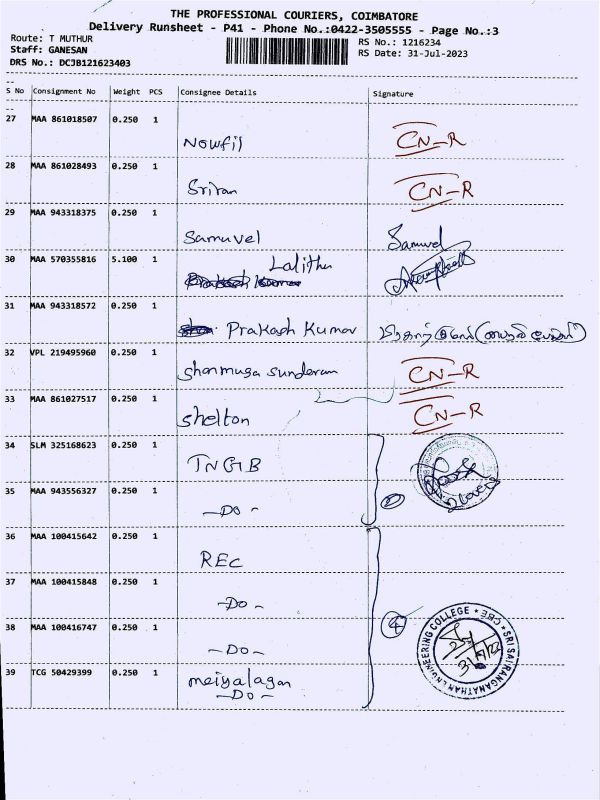 THE PROFESSIONAL COURIERS, COIMBATORE
Delivery Runsheet - P41 - Phone No.:0422-3505555 - Page No.:3
Route: T MUTHUR
RS No.: 1216234
Staff: GANESAN
RS Date: 31-Jul-2023
DRS No.: DCJB121623403
S No Consignment No Weight PCS Consignee Details Signature
27 MAA 861018507 0.250 1 Nowfil CN-R
28 MAA 861028493 0.250 1 Sriran CN-R
29 MAA 943318375 0.250 1 Samuvel Samuvel
30 MAA 570355816 5.100 1 Lalitha
31 MAA 943318572 0.250 1 Prakash Kumar
32 VPL 219495960 0.250 1 Shanmuga Sunderam CN-R
33 MAA 861027517 0.250 1 Shelton CN-R
34 SLM 325168623 0.250 1 TNGB
35 MAA 943556327 0.250 1 -Do-
36 MAA 100415642 0.250 1 REC
37 MAA 100415848 0.250 1 -Do-
38 MAA 100416747 0.250 1 -Do- 4
39 TCG 50429399 0.250 1 meiyalagan
-Do-
SRI SAI RANGANATHAN ENGINEERING COLLEGE * CBE *